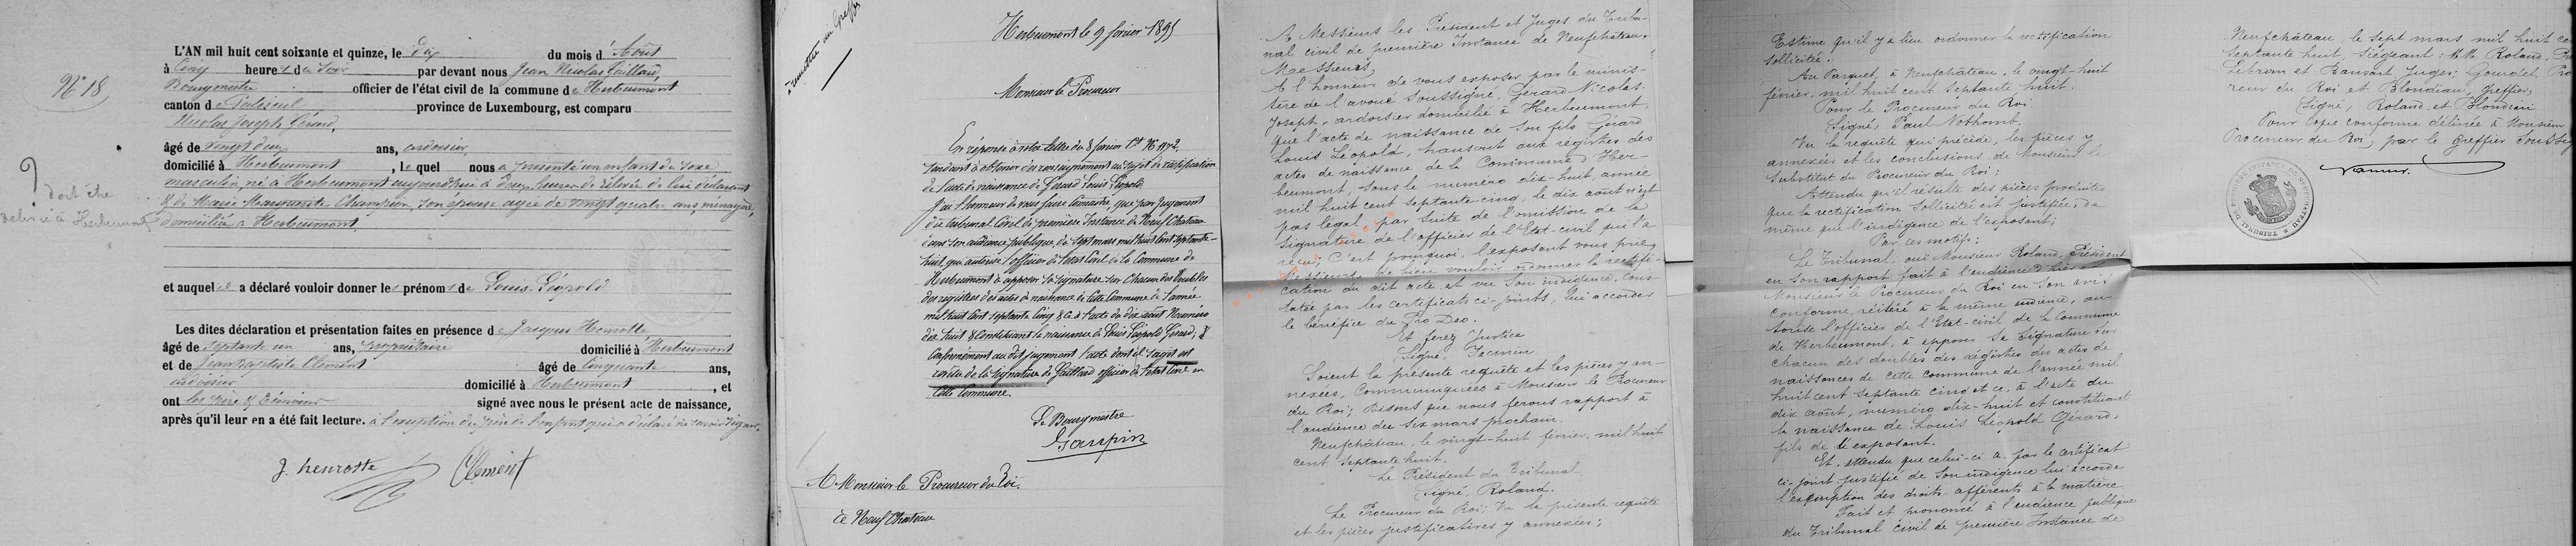 N° 18
L'AN mil huit cent soixante et quinze, le Dix du mois d'Août
à Cinq heures du Soir par devant nous Jean Nicolas Gaillard,
Bourgmestre officier de l'état civil de la commune de Herbeumont
canton de Paliseul province de Luxembourg, est comparu
Nicolas Joseph Gérard,
âgé de vingt deux ans, ardoisier,
domicilié à Herbeumont, lequel nous a présenté un enfant de sexe
masculin, né à Herbeumont aujourd'hui à deux heures de relevée de lui déclarant
& de Marie Marguerite Champion, son épouse agée de vingt quatre ans, ménagère,
domiciliée à Herbeumont,
? doit être
à Herbeumont
et auquel il a déclaré vouloir donner les prénoms de Louis Léopold
Les dites déclaration et présentation faites en présence de Jacques Henrotte
âgé de septante un ans, propriétaire domicilié à Herbeumont
et de Jean Baptiste Clément âgé de Cinquante ans,
ardoisier domicilié à Herbeumont, et
ont les père & témoins signé avec nous le présent acte de naissance,
après qu'il leur en a été fait lecture. à l'exception du père de l'enfant qui a déclaré ne savoir signer.
J. henrotte Clément
à remettre au Greffe
Herbeumont le 9 février 1895
Monsieur le Procureur
En réponse à votre lettre du 8 février Ct N° 1972
tendant à obtenir des renseignements au sujet de rectification
de l'acte de naissance de Gérard Louis Léopold
j'ai l'honneur de vous faire connaitre que par jugement
du tribunal Civil de première Instance de Neuf Chateau
dans son audience publique du sept mars mil huit cent septante-
huit, qui autorise l'officier de l'état Civil de la Commune de
Herbeumont à apposer sa signature sur Chacun des doubles
des registres des actes de naissance de cette Commune de l'année
mil huit cent septante Cinq & ce à l'acte du dix août Numéro
dix huit & Constituant la naissance de Louis Léopold Gérard; &
Conformément au dit jugement l'acte dont il s'agit est
revêtu de la signature de Gaillard officier de l'état Civil en
Cette Commune.
Le Bourgmestre
Gaupin
A Monsieur le Procureur du Roi.
de Neuf Chateau
A Messieurs les Président et Juges du Tribu-
nal civil de première Instance de Neufchâteau.
Messieurs,
A l'honneur de vous exposer par le minis-
tère de l'avoué soussigné, Gérard Nicolas
Joseph, ardoisier domicilié à Herbeumont,
que l'acte de naissance de son fils Gérard
Louis Léopold, transcrit aux registres des
actes de naissance de la Commune d'Her-
beumont, sous le numéro dix-huit, année
mil huit cent septante-cinq, le dix août n'est
pas légal, par suite de l'omission de la
signature de l'officier de l'Etat-civil qui l'a
reçu; C'est pourquoi, l'exposant vous prie,
Messieurs de bien vouloir ordonner la rectifi-
cation du dit acte et vu son indigence, cons-
tatée par les certificats ci-joints, lui accorder
le bénéfice du Pro Deo.
Et ferez Justice
Signé, Jacmin.
Soient la présente requête et les pièces y an-
nexées, Communiquées à Monsieur le Procureur
du Roi; Disons que nous ferons rapport à
l'audience du six mars prochain.
Neufchâteau, le vingt-huit février, mil huit
cent septante huit.
Le Président du Tribunal
Signé, Roland.
Le Procureur du Roi; Vu la présente requête
et les pièces justificatives y annexées;
Estime qu'il y a lieu ordonner la rectification
sollicitée.
Au Parquet, à Neufchâteau, le vingt-huit
février, mil huit cent septante huit.
Pour le Procureur du Roi.
Signé, Paul Nothomb.
Vu la requête qui précède, les pièces y
annexées et les conclusions de Monsieur le
Substitut du Procureur du Roi;
Attendu qu'il résulte des pièces produites
que la rectification sollicitée est justifiée, de
même que l'indigence de l'exposant;
Par ces motifs:
Le Tribunal, ouï Monsieur Roland, Président
en son rapport fait à l'audience d'hier et
Monsieur le Procureur du Roi en son avis
conforme, réitéré à la même audience, au-
torise l'officier de l'Etat-civil de la Commune
de Herbeumont, à apposer sa signature sur
chacun des doubles des régistres des actes de
naissances de cette commune de l'année mil
huit cent septante cinq et ce, à l'acte du
dix août, numéro dix-huit et constituant
la naissance de Louis Léopold Gérard,
fils de l'exposant.
Et, attendu que celui-ci a, par le certificat
ci-joint justifié de son indigence lui accorde
l'exemption des droits afférents à la matière
Fait et prononcé à l'audience publique
du Tribunal civil de première Instance de
Neufchâteau, le sept mars mil huit ce
septante huit, Siégeant: M.M. Roland, Pr
Lebrun et Bansart Juges; Gourdet, Pro
reur du Roi et Blondiau, greffier,
Signé, Roland et Blondiau
Pour Copie conforme délivrée à Monsieur
Procureur du Roi, par le greffier Soussig
TRIBUNAL DE PREMIERE INSTANCE DE NEUFCHATEAU